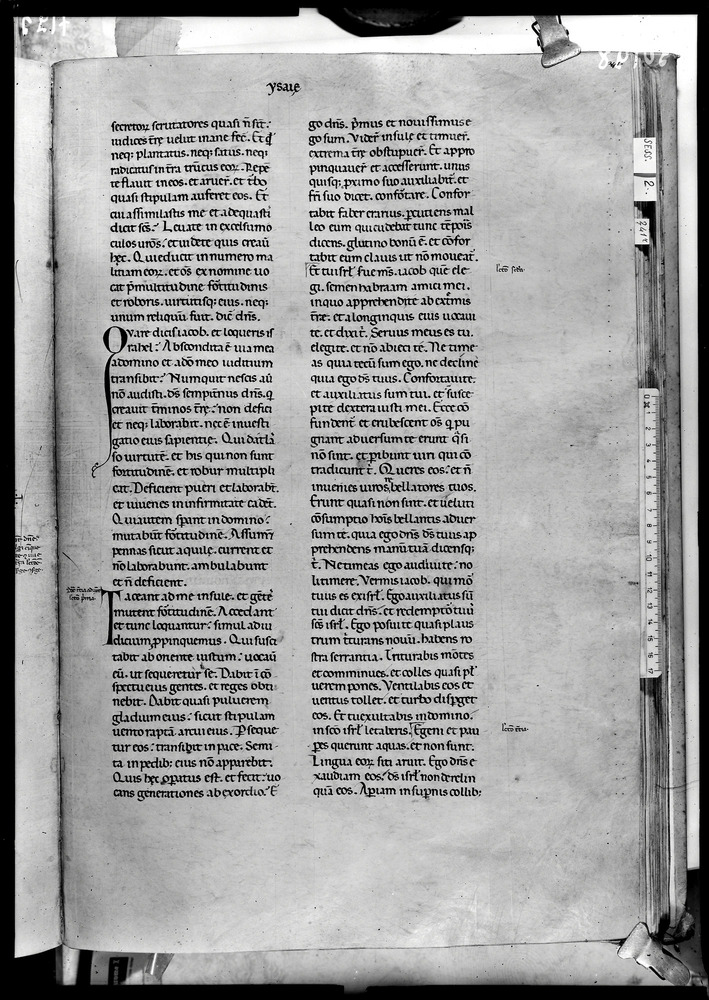 ysaię
secretoꝝ scrutatores quasi ñ sĩt.
iudices t̃rę uelut inane fec̃. Et q̃
neq; plantatus. neq; satus. neq;
radicatus in t̃ra truncus eoꝝ. Repẽ
te flauit in eos. et aruer̃. et t̃bo
quasi stipulam auferet eos. Et
cui assimilastis me et adequasti
dicit sc̃s. Leuate in excelsum o
culos ur̃os. et uidete quis creauit
hęc. Qui educit in numero ma
litiam eoꝝ. et om̃s ex nomine uo
cat. p̃ multitudine fortitudinis
et roboris. uirtutisq; eius. neq;
unum reliquũ fuit. dic̃ dñs.
Quare dicis iacob. et loqueris is
rahel. Abscondita ẽ uia mea
a domino et a dõ meo iudicium
transibit. Numquit nescis aũ
nõ audisti. ds̃ sempit̃nus dñs. q̃
creauit t̃minos t̃rę. non defici
et neq; laborabit. nec ẽ inuesti
gatio eius sapientię. Qui dat las
so uirtutẽ. et his qui non sunt
fortitudinẽ. et robur multipli
cat. Deficient pueri et laborabt̃.
et iuuenes in infirmitate cadẽt.
Qui autem sp̃ant in domino.
mutabũt fortitudinẽ. Assumẽt
pennas sicut aquilę. current et
nõ laborabunt. ambulabunt
et ñ deficient.
Taceant ad me insulę. et gẽtes
mutent fortitudinẽ. Accedant
et tunc loquantur. simul ad iu
dicium ꝓpinquemus. Quis susci
tabit ab oriente iustum. uocauit
eũ. ut sequeretur se. Dabit ĩ cõ
spectu eius gentes. et reges obti
nebit. Dabit quasi puluerem
gladium eius. sicut stipulam
uento raptã. arcui eius. Pseque
tur eos. transibit in pace. Semi
ta in pedib; eius nõ apparebit.
Quis hęc oꝑatus est. et fecit. uo
cans generationes ab exordio. E
go dñs. pm̃us et nouissimus e
go sum. Vider̃ insulę et timuer̃.
extrema t̃rę obstupuer̃. Et appro
pinquauer̃ et accesserunt. unus
quisq; ꝓximo suo auxiliabit̃. et
fr̃i suo dicet. confortare. Confor
tabit faber ęrarius. ꝑcutiens mal
leo eum qui cudebat tunc tẽpois
dicens. glutino bonũ ẽ. et cõfor
tabit eum clauis ut nõ moueat̃.
Et tu isrł. fue ms̃. iacob quẽ ele
gi. semen habraam amici mei.
in quo apprehendi te ab extr̃mis
t̃rę. et a longinquis eius uocaui
te. et dixi t̃. Seruus meus es tu.
elegi te. et nõ abieci te. Ne time
as quia tecũ sum ego. ne declinẽ
quia ego ds̃ tuus. Confortaui te.
et auxiliatus sum tui. et susce
pit te dextera iusti mei. Ecce cõ
fundent̃ et erubescent os̃ q̃ pu
gnant aduersum te. erunt q̃si
nõ sint. et ꝑibunt uiri qui cõ
tradicunt t̃. Quęres eos. et ñ
inuenies uiros bellatores tuos.
Erunt quasi non sint. et ueluti
cõsumptio hoĩs bellantis aduer
sum te. quia ego dñs ds̃ tuus ap
prehendens manũ tuã dicensq;
t̃. Ne timeas ego adiuui te. no
li timere. Vermis iacob. qui mõ
tuus es ex isrł. Ego auxiliatus sũ
tui dicit dñs. et redemptõ tuũ
sc̃s isrł. Ego posui te quasi plaus
trum t̃turans nouũ. habens ro
stra serrantia. Triturabis mõtes
et comminues. et colles quasi pł
uerem pones. Ventilabis eos et
uentus tollet. et turbo disꝑget
eos. Et tu exultabis in domino.
in sc̃o isrł letaberis. Egeni et pau
ꝑes querunt aquas. et non sunt.
Lingua eoꝝ siti aruit. Ego dñs e
xaudiam eos. ds̃ isrł non derelin
quã eos. Aꝑiam in suꝑnis collib;
SESS.
2.